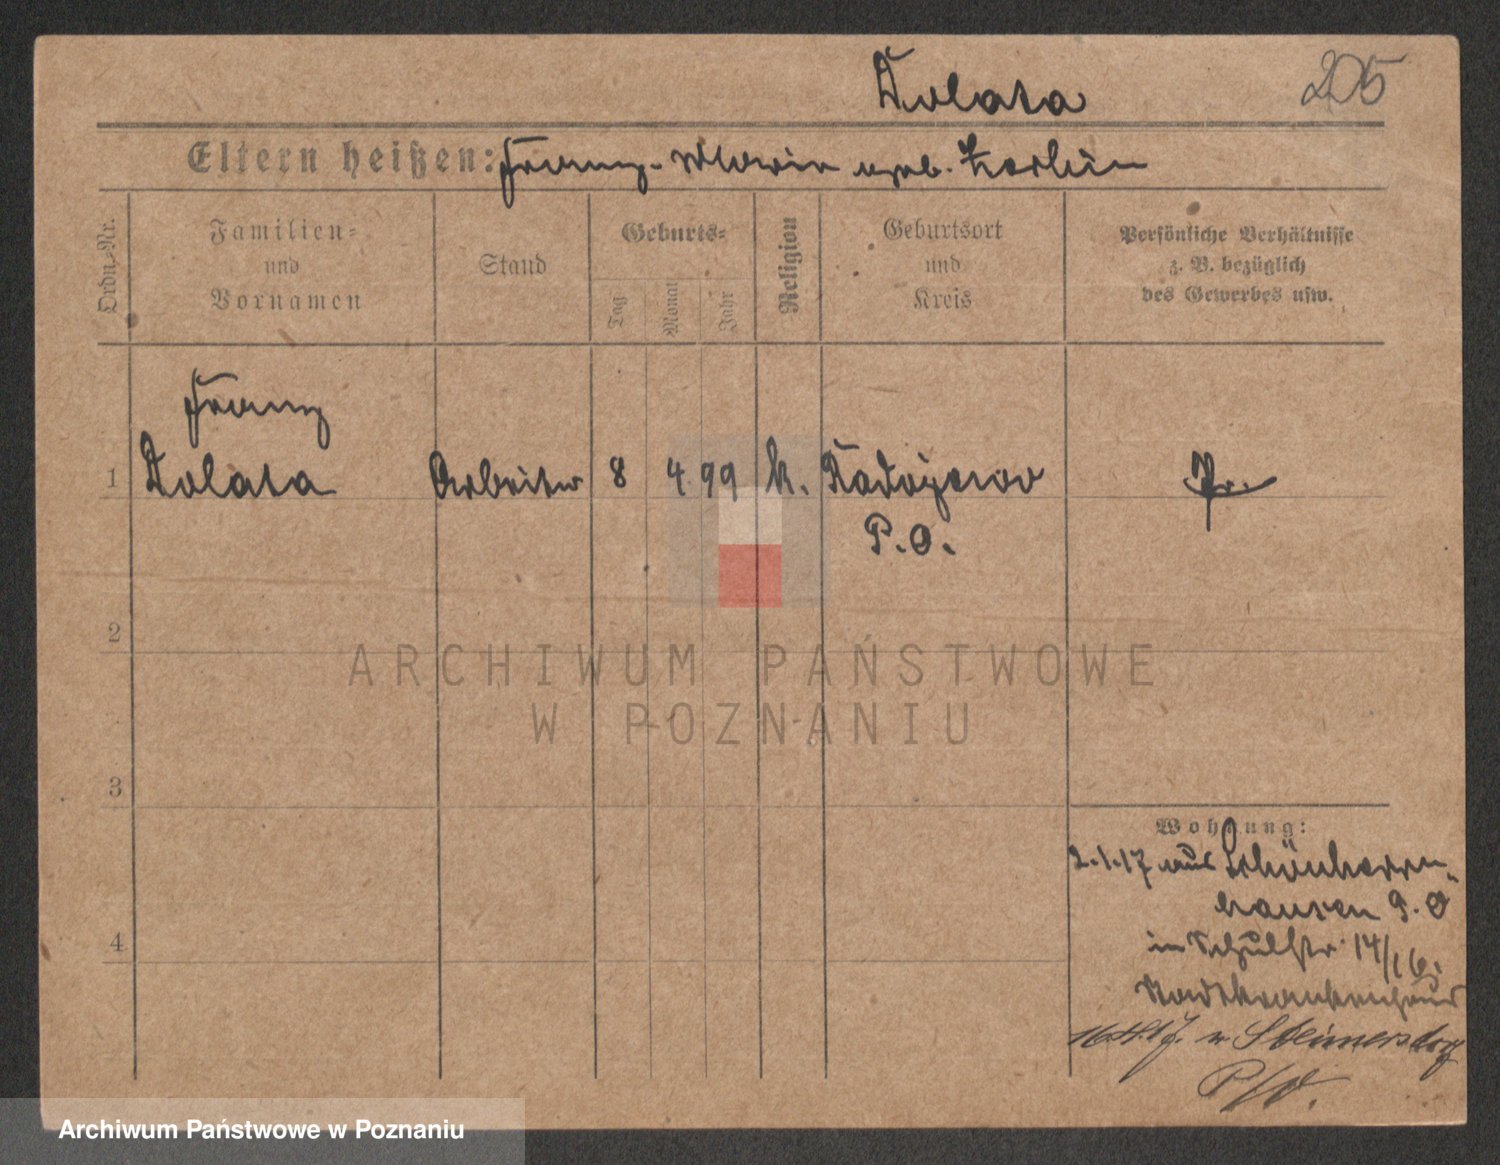 Dolata
205
Eltern heißen: Franz - Maria geb.
Ordn.-Nr.
Familien-
und
Vornamen
Stand
Geburts-
Tag
Monat
Jahr
Religion
Geburtsort
und
Kreis
Persönliche Verhältnisse
z. B. bezüglich
des Gewerbes usw.
Franz
1 Dolata Arbeiter 8 4. 99 k. Radojewo Pr.
P. O.
2
3
4
Wohnung:
2.1.17 aus Schönherrn-
hausen P. O
in Schulstr. 14/
Stadtkrankenhaus
n. Steimersdorf
ARCHIWUM PAŃSTWOWE
W POZNANIU
Archiwum Państwowe w Poznaniu